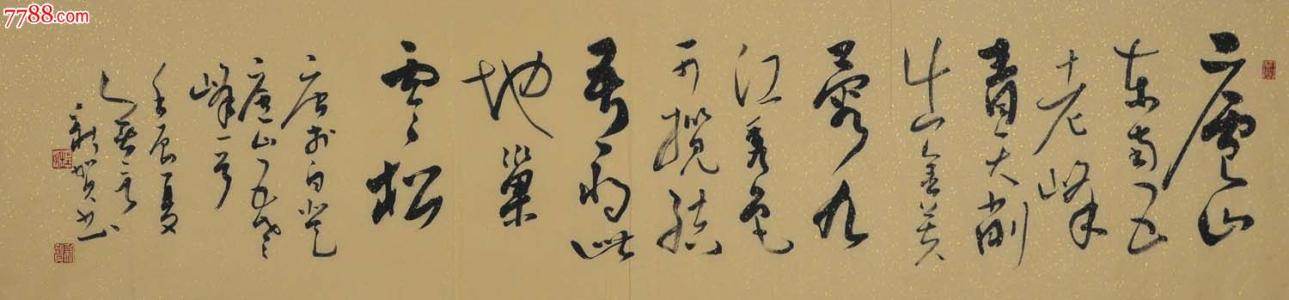 7788.com
廬山
东南五
老峰
青天削
出金芙
蓉九
江秀色
可揽结
吾将此
地巢
雲松
唐李白登
廬山五老
峰一首
壬辰夏